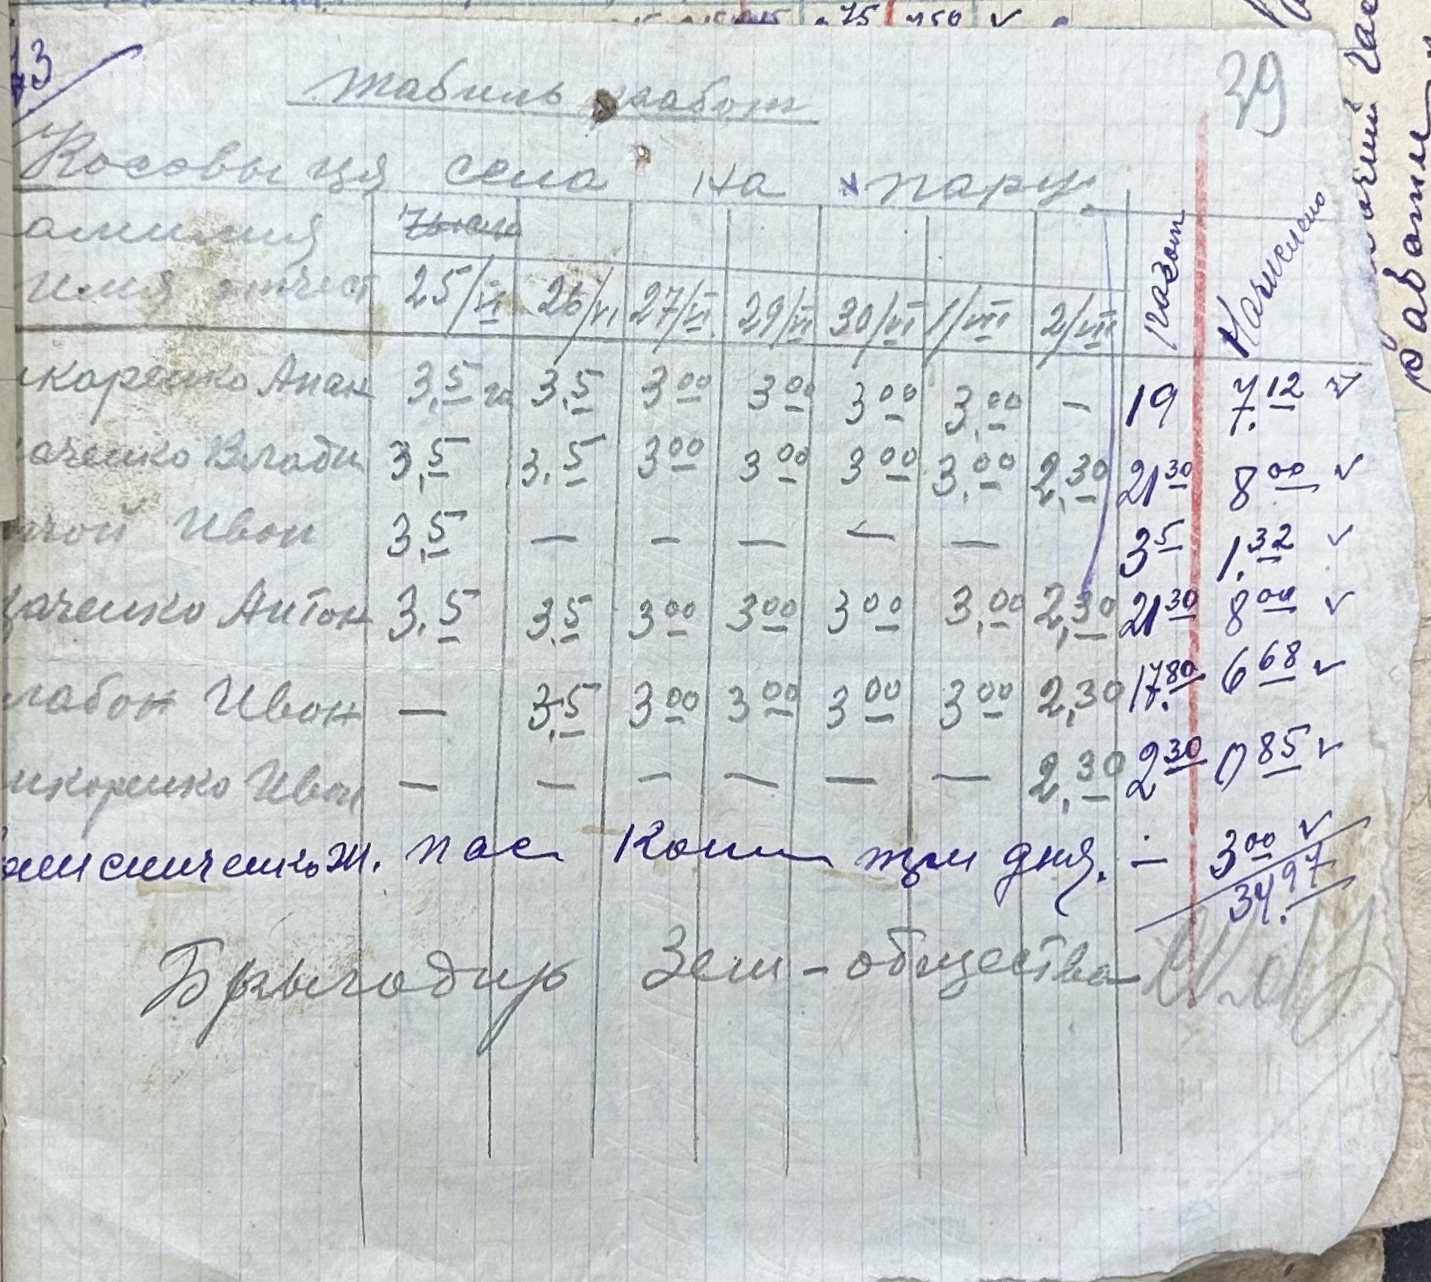 39
Табиль работ
Косовыця сена на пару
амилия Число
имя отчест 25/VI 26/VI 27/VI 29/VI 30/VI 1/VIII 2/VIII Начислено
каренко Апан 3,5 га 3,5 3 00 3 00 3 00 3,00 — 19 7.12
аченко Влади 3,5 3,5 3 00 3 00 3 00 3,00 2,30 21 30 8 00
чой Иван 3,5 — — — — — 3 5 1.32
аченко Антон 3,5 3,5 3 00 3 00 3 00 3,00 2,30 21 30 8 00
лабон Иван — 3,5 3 00 3 00 3 00 3 00 2,30 17.80 6 68
икоренко Иван — — — — — — 2,30 2 30 0 85
пас три дня. — 3 00
34.97
Брыгодир Зем-общества